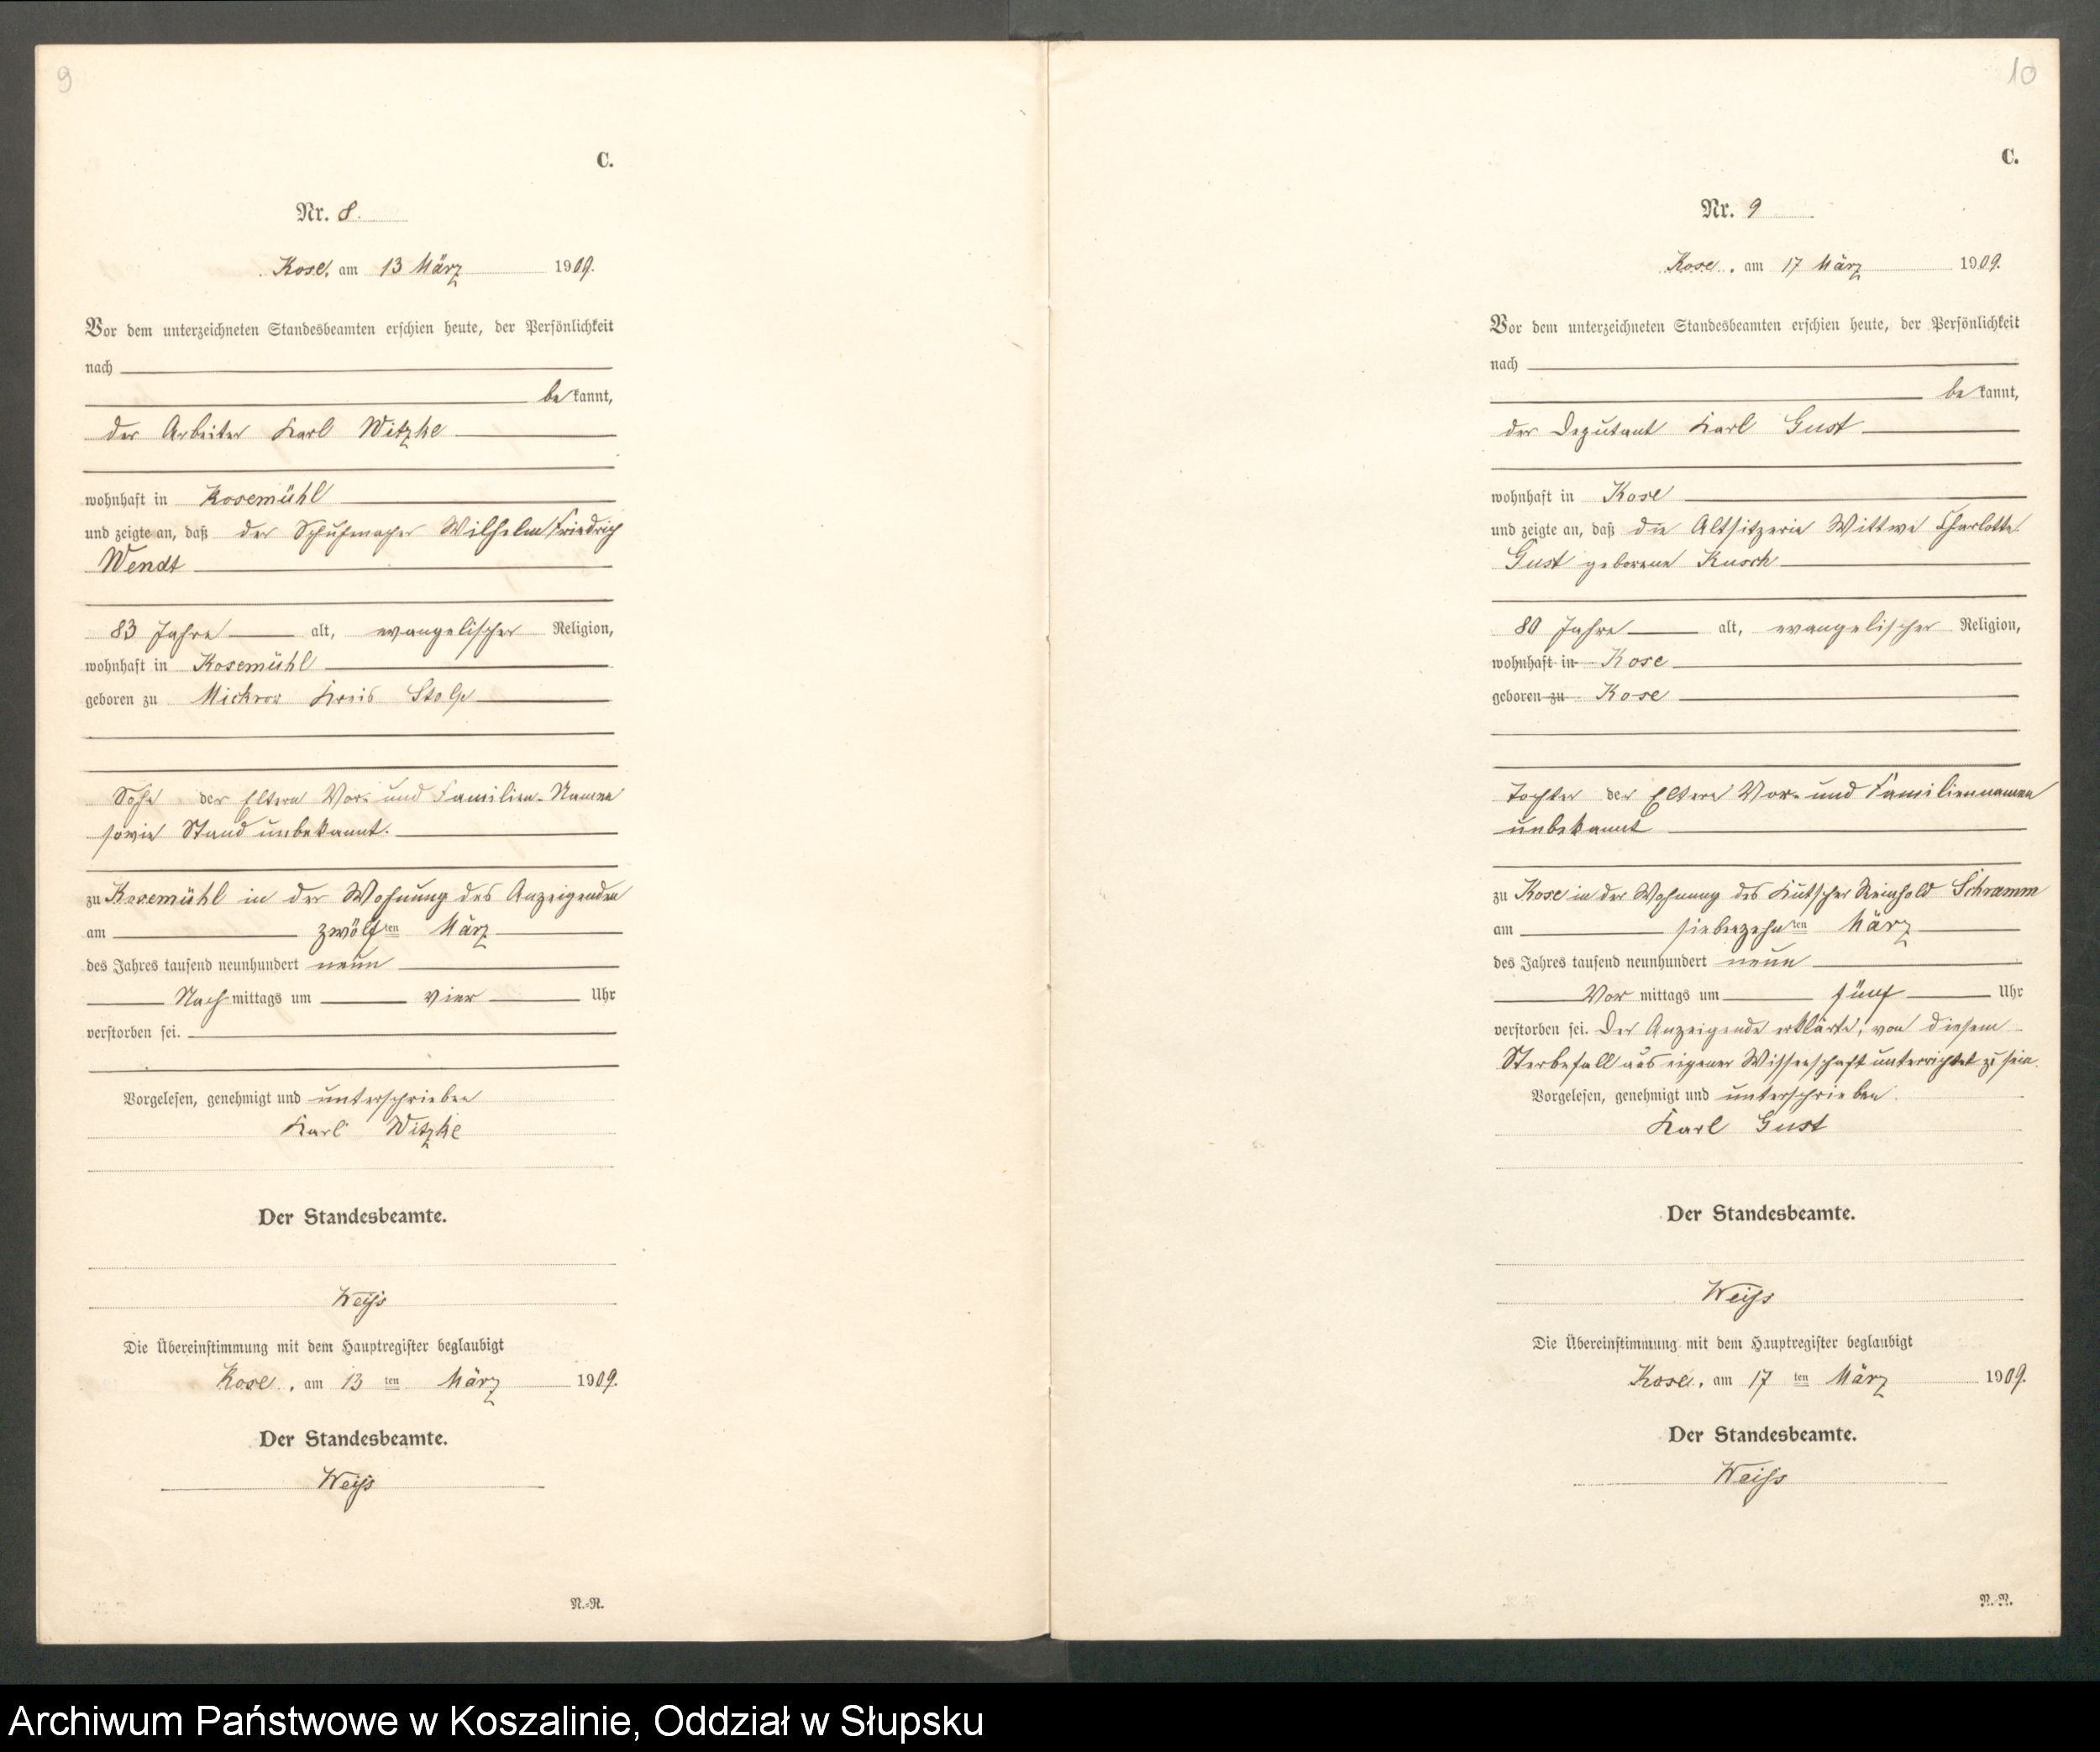 9
C.
Nr. 8.
Kose, am 13 März 1909.
Vor dem unterzeichneten Standesbeamten erschien heute, der Persönlichkeit
nach
be kannt,
der Arbeiter Karl Witzke
wohnhaft in Kosemühl
und zeigte an, daß der Schuhmacher Wilhelm Friedrich
Wendt
83 Jahre alt, evangelischer Religion,
wohnhaft in Kosemühl
geboren zu Mickrow Kreis Stolp
Sohn der Eltern Vor- und Familien-Namen
sowie Stand unbekannt.
zu Kosemühl in der Wohnung des Anzeigenden
am zwölften März
des Jahres tausend neunhundert neun
Nach mittags um vier Uhr
verstorben sei.
Vorgelesen, genehmigt und unterschrieben
Karl Witzke
Der Standesbeamte.
Weiss
Die Übereinstimmung mit dem Hauptregister beglaubigt
Kose, am 13 ten März 1909.
Der Standesbeamte.
Weiss
N.-R.
10
C.
Nr. 9
Kose, am 17 März 1909.
Vor dem unterzeichneten Standesbeamten erschien heute, der Persönlichkeit
nach
be kannt,
der Deputant Karl Gust
wohnhaft in Kose
und zeigte an, daß die Altsitzerin Wittwe Charlotte
Gust geborene Kusch
80 Jahre alt, evangelischer Religion,
wohnhaft in Kose
geboren zu Kose
Tochter der Eltern Vor- und Familiennamen
unbekannt
zu Kose in der Wohnung des Kutscher Reinhold Schramm
am siebenzehnten März
des Jahres tausend neunhundert neun
Vor mittags um fünf Uhr
verstorben sei. Der Anzeigende erklärte, von diesem
Sterbefall aus eigener Wissenschaft unterrichtet zu sein.
Vorgelesen, genehmigt und unterschrieben.
Karl Gust
Der Standesbeamte.
Weiss
Die Übereinstimmung mit dem Hauptregister beglaubigt
Kose, am 17 ten März 1909.
Der Standesbeamte.
Weiss
N.-R.
Archiwum Państwowe w Koszalinie, Oddział w Słupsku